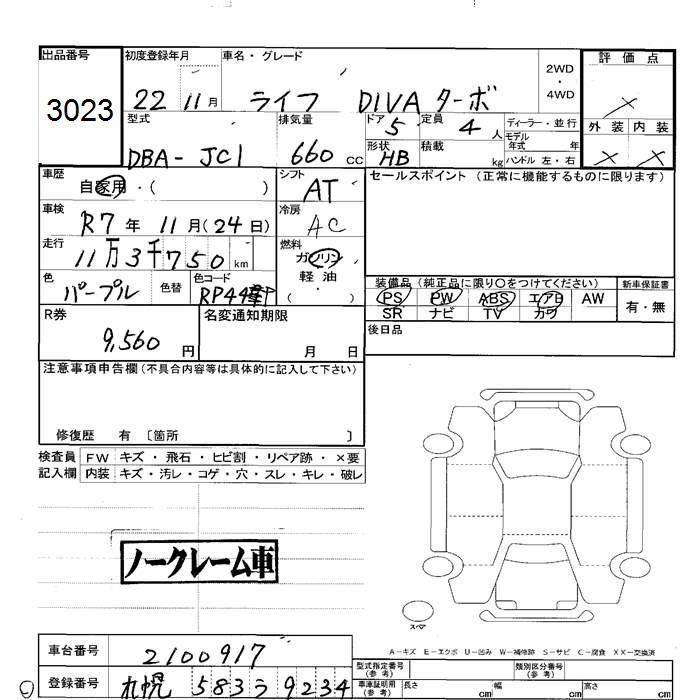 出品番号 初度登録年月 車名・グレード 2WD・4WD 評価点
3023 22 11月 ライフ DIVA ターボ ×
型式 排気量 ドア 5 定員 4人 ディーラー・並行 外装 内装
DBA-JC1 660cc 形状 HB 積載 kg モデル年式 年 × ×
ハンドル 左・右
車歴 自家用・( ) シフト AT セールスポイント (正常に機能するものに限ります)
車検 R7年 11月(24日) 冷房 AC
走行 11万3千750km 燃料 ガソリン・軽油・( )
色 パープル 色替 色コード RP44 装備品 (純正品に限り○をつけてください) 新車保証書
PS PW ABS エアB AW 有・無
SR ナビ TV カワ
R券 9,560円 名変通知期限 月 日 後日品
注意事項申告欄 (不具合内容等は具体的に記入して下さい)
修復歴 有 〔箇所 〕
検査員 FW キズ・飛石・ヒビ割・リペア跡・×要
記入欄 内装 キズ・汚レ・コゲ・穴・スレ・キレ・破レ
ノークレーム車
スペア
A-キズ E-エクボ U-凹み W-補修跡 S-サビ C-腐食 XX-交換済
車台番号 2100917 型式指定番号(参考) 類別区分番号(参考)
登録番号 札幌 583 う 9234 車庫証明用(参考) 長さ cm 幅 cm 高さ cm